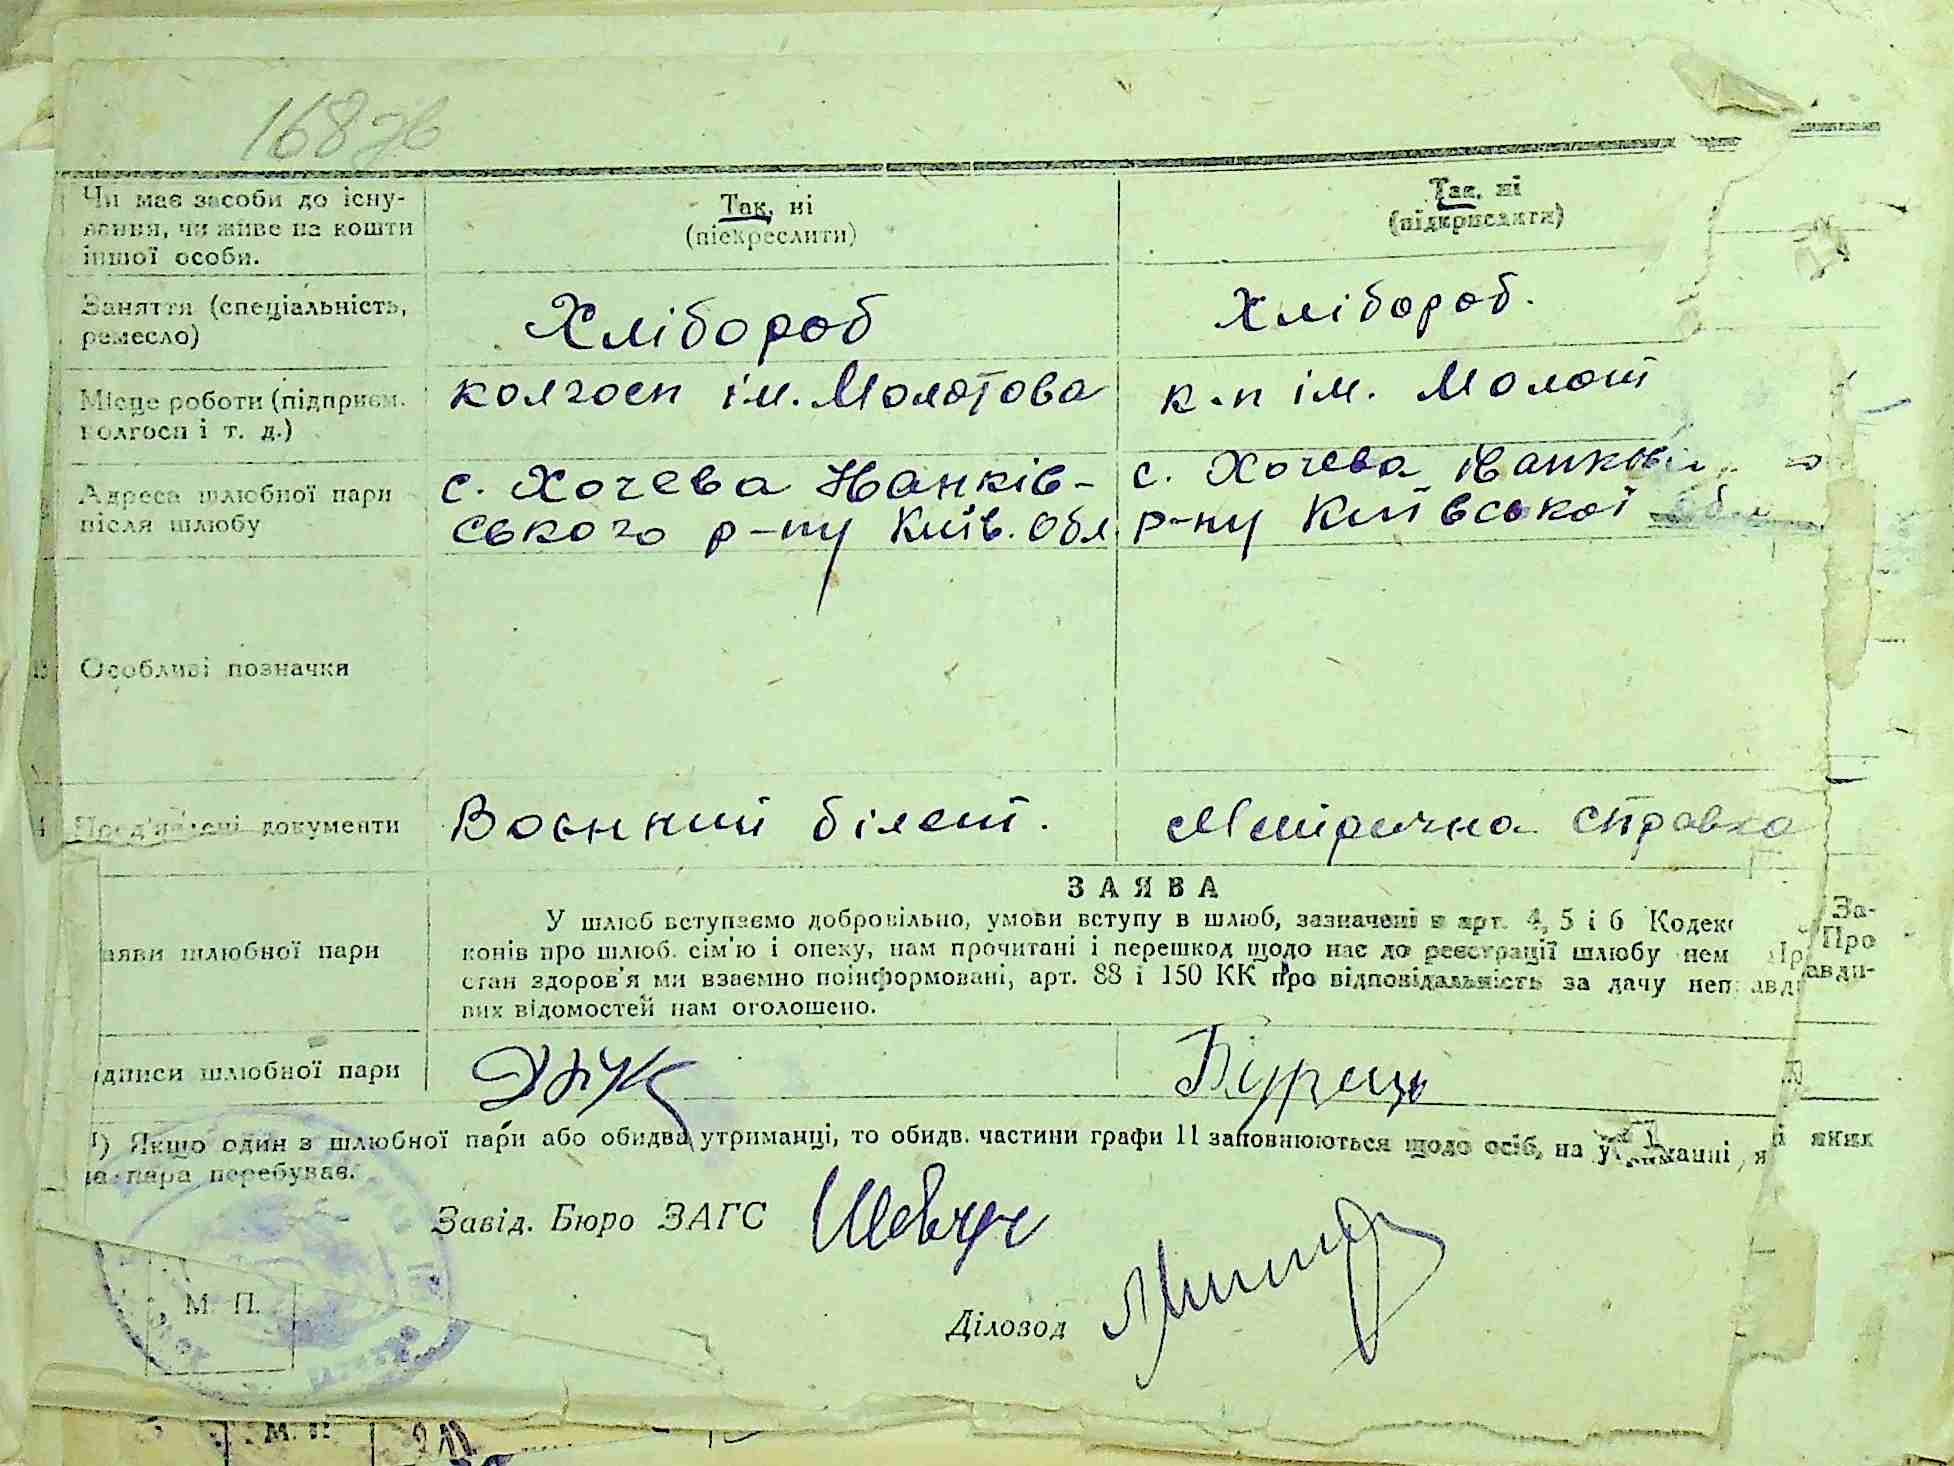 168 зв
Чи має засоби до існу-
вання, чи живе на кошти
іншої особи.
Так, ні
(підкреслити)
Так, ні
(підкреслити)
Заняття (спеціальність,
ремесло)
Хлібороб
Хлібороб.
Місце роботи (підприєм.
колгосп і т. д.)
колгосп ім. Молотова
к-п ім. Молот
Адреса шлюбної пари
після шлюбу
с. Хочева Іванків-
ського р-ну Київ. обл.
с. Хочева Іванків
р-ну Київської обл
13 Особливі позначки
Пред'явлені документи
Воєнний білет.
Метрична справка
ЗАЯВА
аяви шлюбної пари
У шлюб вступаємо добровільно, умови вступу в шлюб, зазначені в арт. 4, 5 і 6 Кодекс За-
конів про шлюб. сім'ю і опеку, нам прочитані і перешкод щодо нас до реєстрації шлюбу нем Про
стан здоров'я ми взаємно поінформовані, арт. 88 і 150 КК про відповідальність за дачу неправди-
вих відомостей нам оголошено.
дписи шлюбної пари
) Якщо один з шлюбної пари або обидва утриманці, то обидв. частини графи 11 заповнюються щодо осіб, на утриманні яких
ця пара перебуває.
Завід. Бюро ЗАГС Шевчук
М. П.
Діловод
М. П.